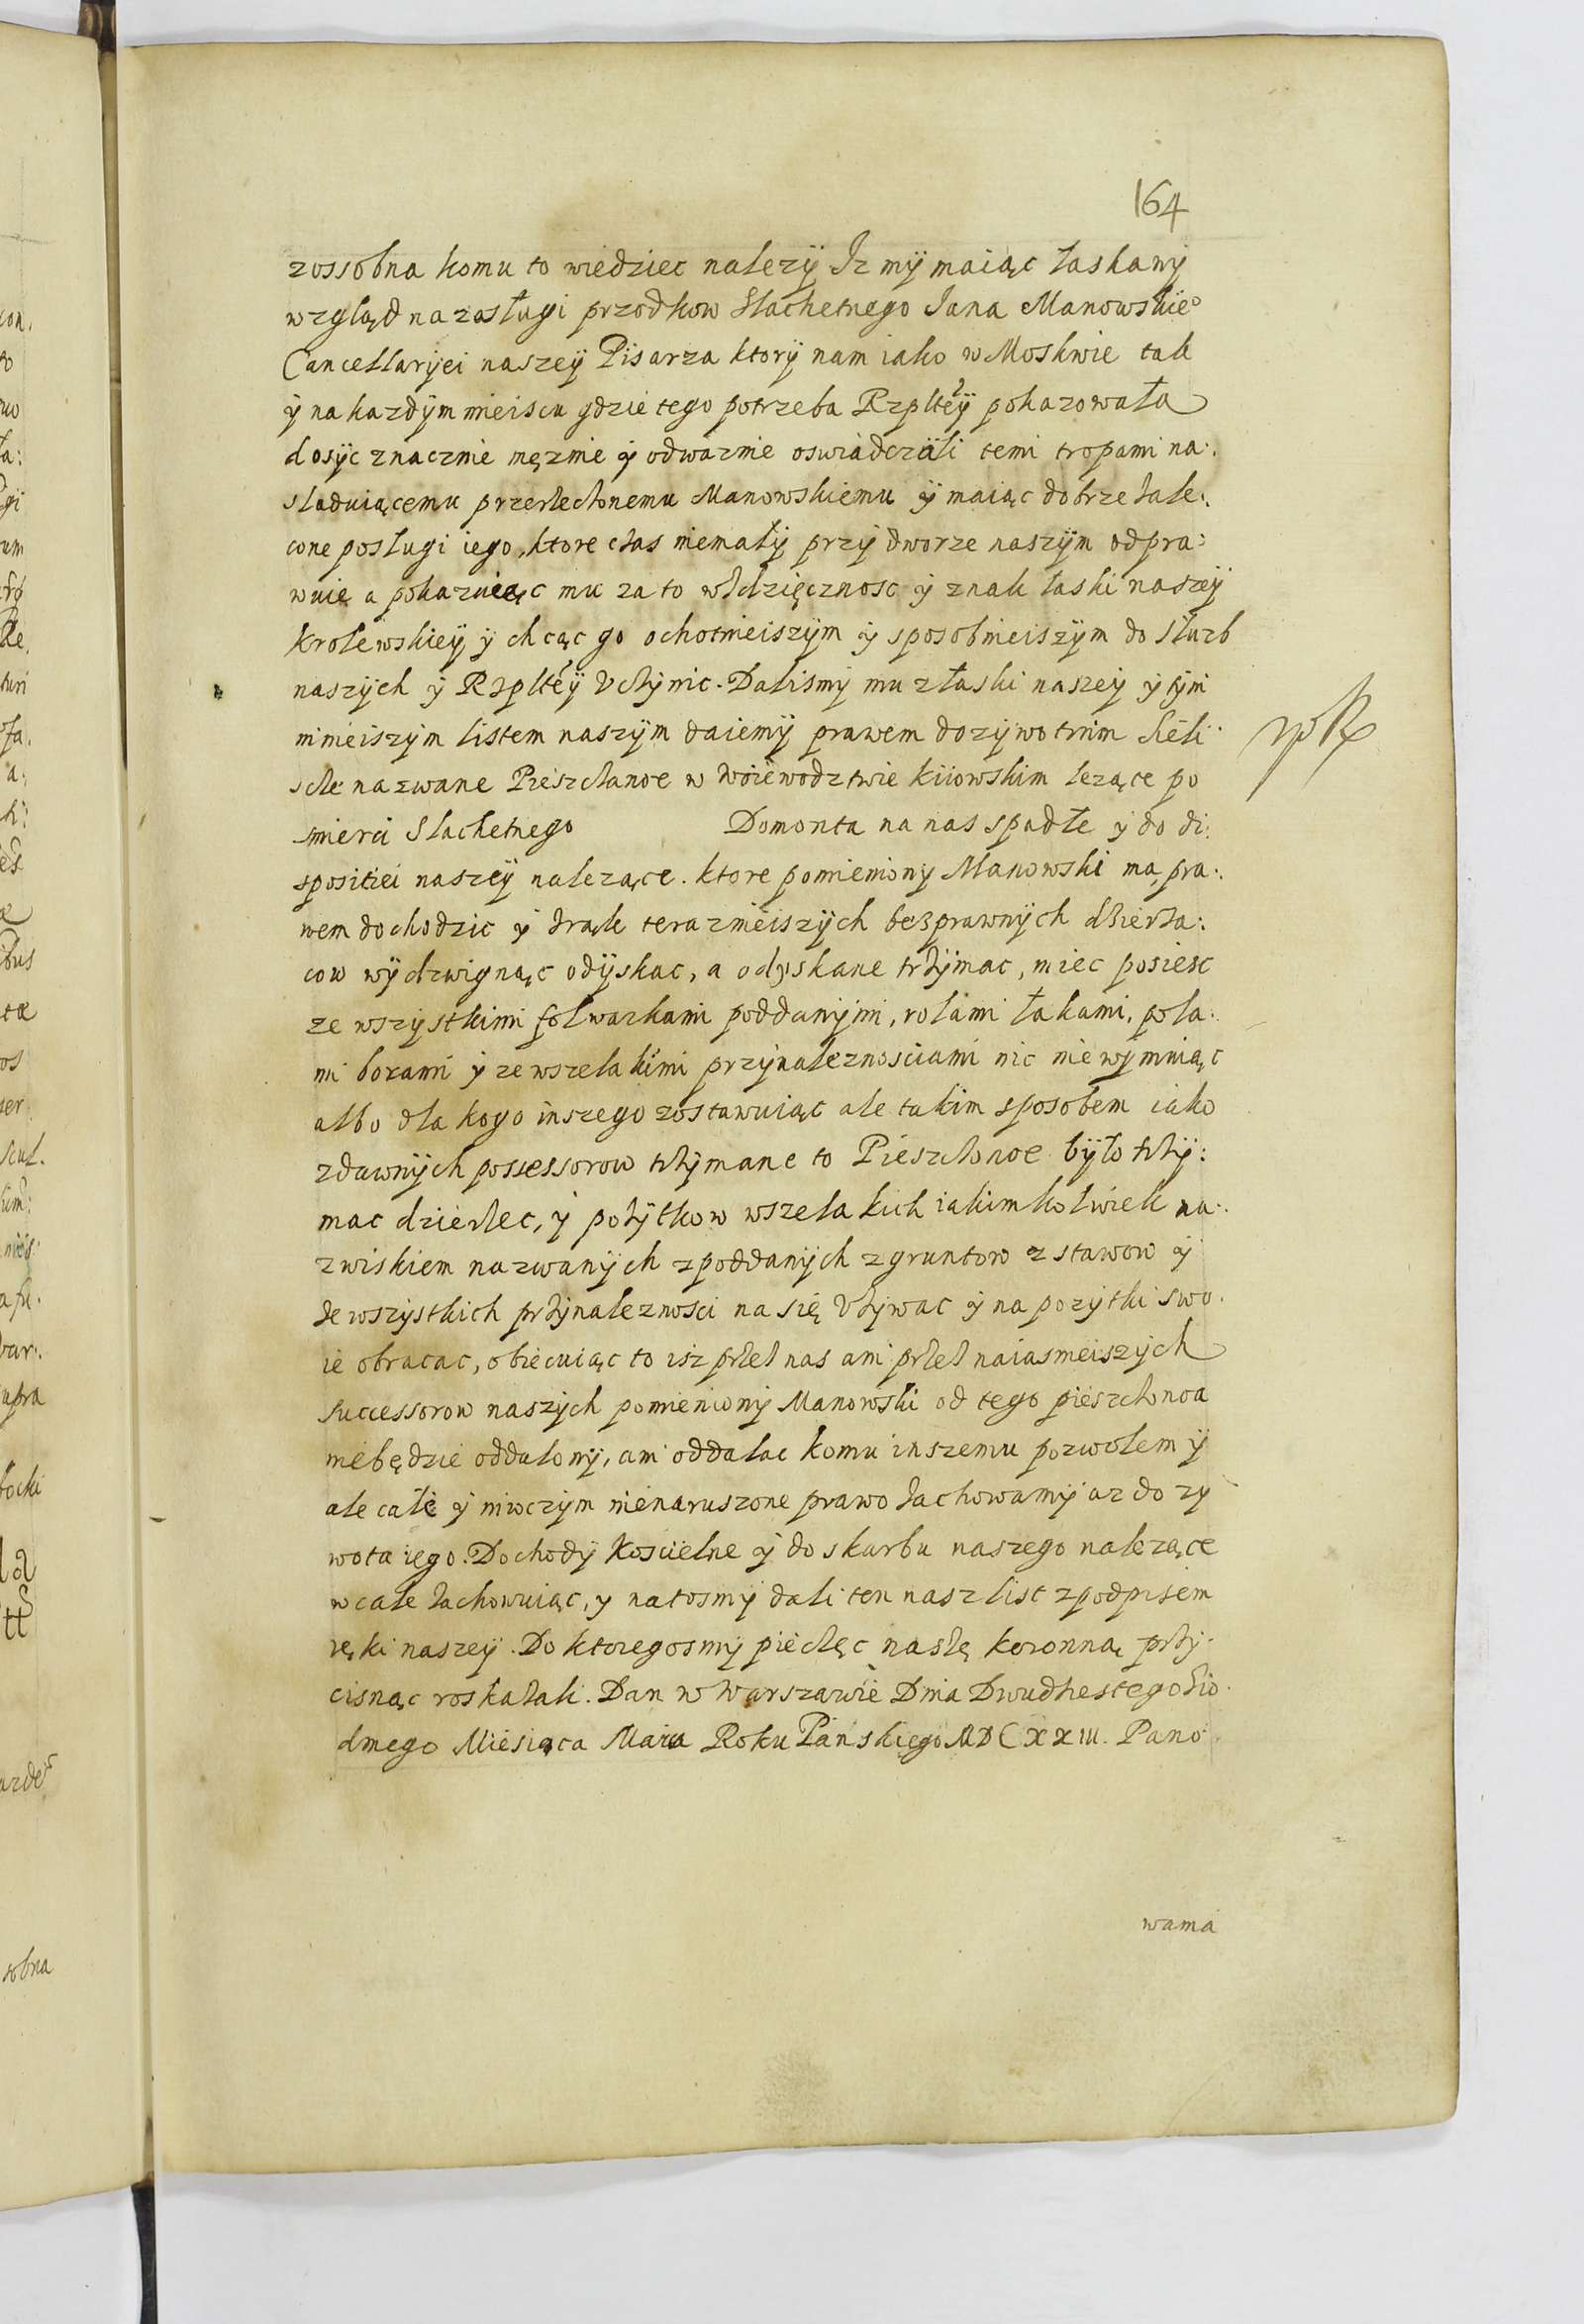 164
zossobna komu to wiedziec nalezÿ Iz mÿ maiąc łaskawÿ
wzgląd na zasługi przodkow Slachetnego Jana Manowskie°
Cancellarÿei naszeÿ Pisarza ktorÿ nam iako w Moskwie tak
ÿ na kazdÿm mieiscu gdzie tego potrzeba Rzpltéÿ pokazowała
dosÿc znacznie męznie ÿ odwaznie oswiadczÿli temi tropami na:
sladuiącemu przerzeczonemu Manowskiemu ÿ maiąc dobrze zale:
cone posługi iego, ktore czas niemałÿ przÿ dworze naszÿm odpra:
wuie a pokazuiąc mu za to wdzięcznosc ÿ znak łaski naszeÿ
krolewskieÿ ÿ chcąc go ochotnieiszÿm ÿ sposobnieiszÿm do służb
naszÿch ÿ Rzpltéÿ Vczÿnic. Dalismÿ mu z łaski naszeÿ ÿ tÿm
ninieiszÿm listem naszÿm daiemÿ prawem dozÿwotnim sieli
scze nazwane Pieszczanoe w woiewodztwie kiiowskim lezące po
smierci Slachetnego Domonta na nas spadłe ÿ do di:
spositiei naszeÿ nalezące. ktore pomienionÿ Manowski ma pra:
wem dochodzic ÿ z rąk teraznieiszÿch bezprawnÿch dzierza:
cow wÿdzwignąc odÿskac, a odÿskane trzÿmac, miec posiesc
ze wszÿstkimi folwarkami poddanÿmi, rolami łakami, pola:
mi borami ÿ ze wszelakimi przÿnaleznosciami nic nie wÿmniąc
albo dla kogo inszego zostawuiąc ale takim sposobem iako
zdawnÿch possessorow trzÿmane to Pieszczonoe bÿło trzÿ:
mac dzierzec, ÿ pozÿtkow wszelakich iakimkolwiek na:
zwiskiem nazwanÿch z poddanÿch z gruntow z stawow ÿ
ze wszÿstkich przÿnaleznosci na się Vzÿwac ÿ na pozÿtki swo:
ie obracac, obiecuiąc to isz przez nas ani przez naiasnieiszÿch
successorow naszÿch pomienionÿ Manowski od tego pieszczonoa
niebędzie oddalonÿ, ani oddalac komu inszemu pozwolemÿ
ale całe ÿ niwczÿm nienaruszone prawo zachowamÿ az do zÿ
wota iego. Dochodÿ koscielne ÿ do skarbu naszego nalezące
wcale zachowuiąc, ÿ natosmÿ dali ten nasz list z podpisem
ręki naszeÿ. Do ktoregosmÿ pieczęc naszę koronną przÿ:
cisnąc roskazali. Dan w Warszawie Dnia Dwudziestego Sio
dmego Miesiąca Maia Roku Pańskiego MDCXXIII. Pano
wania